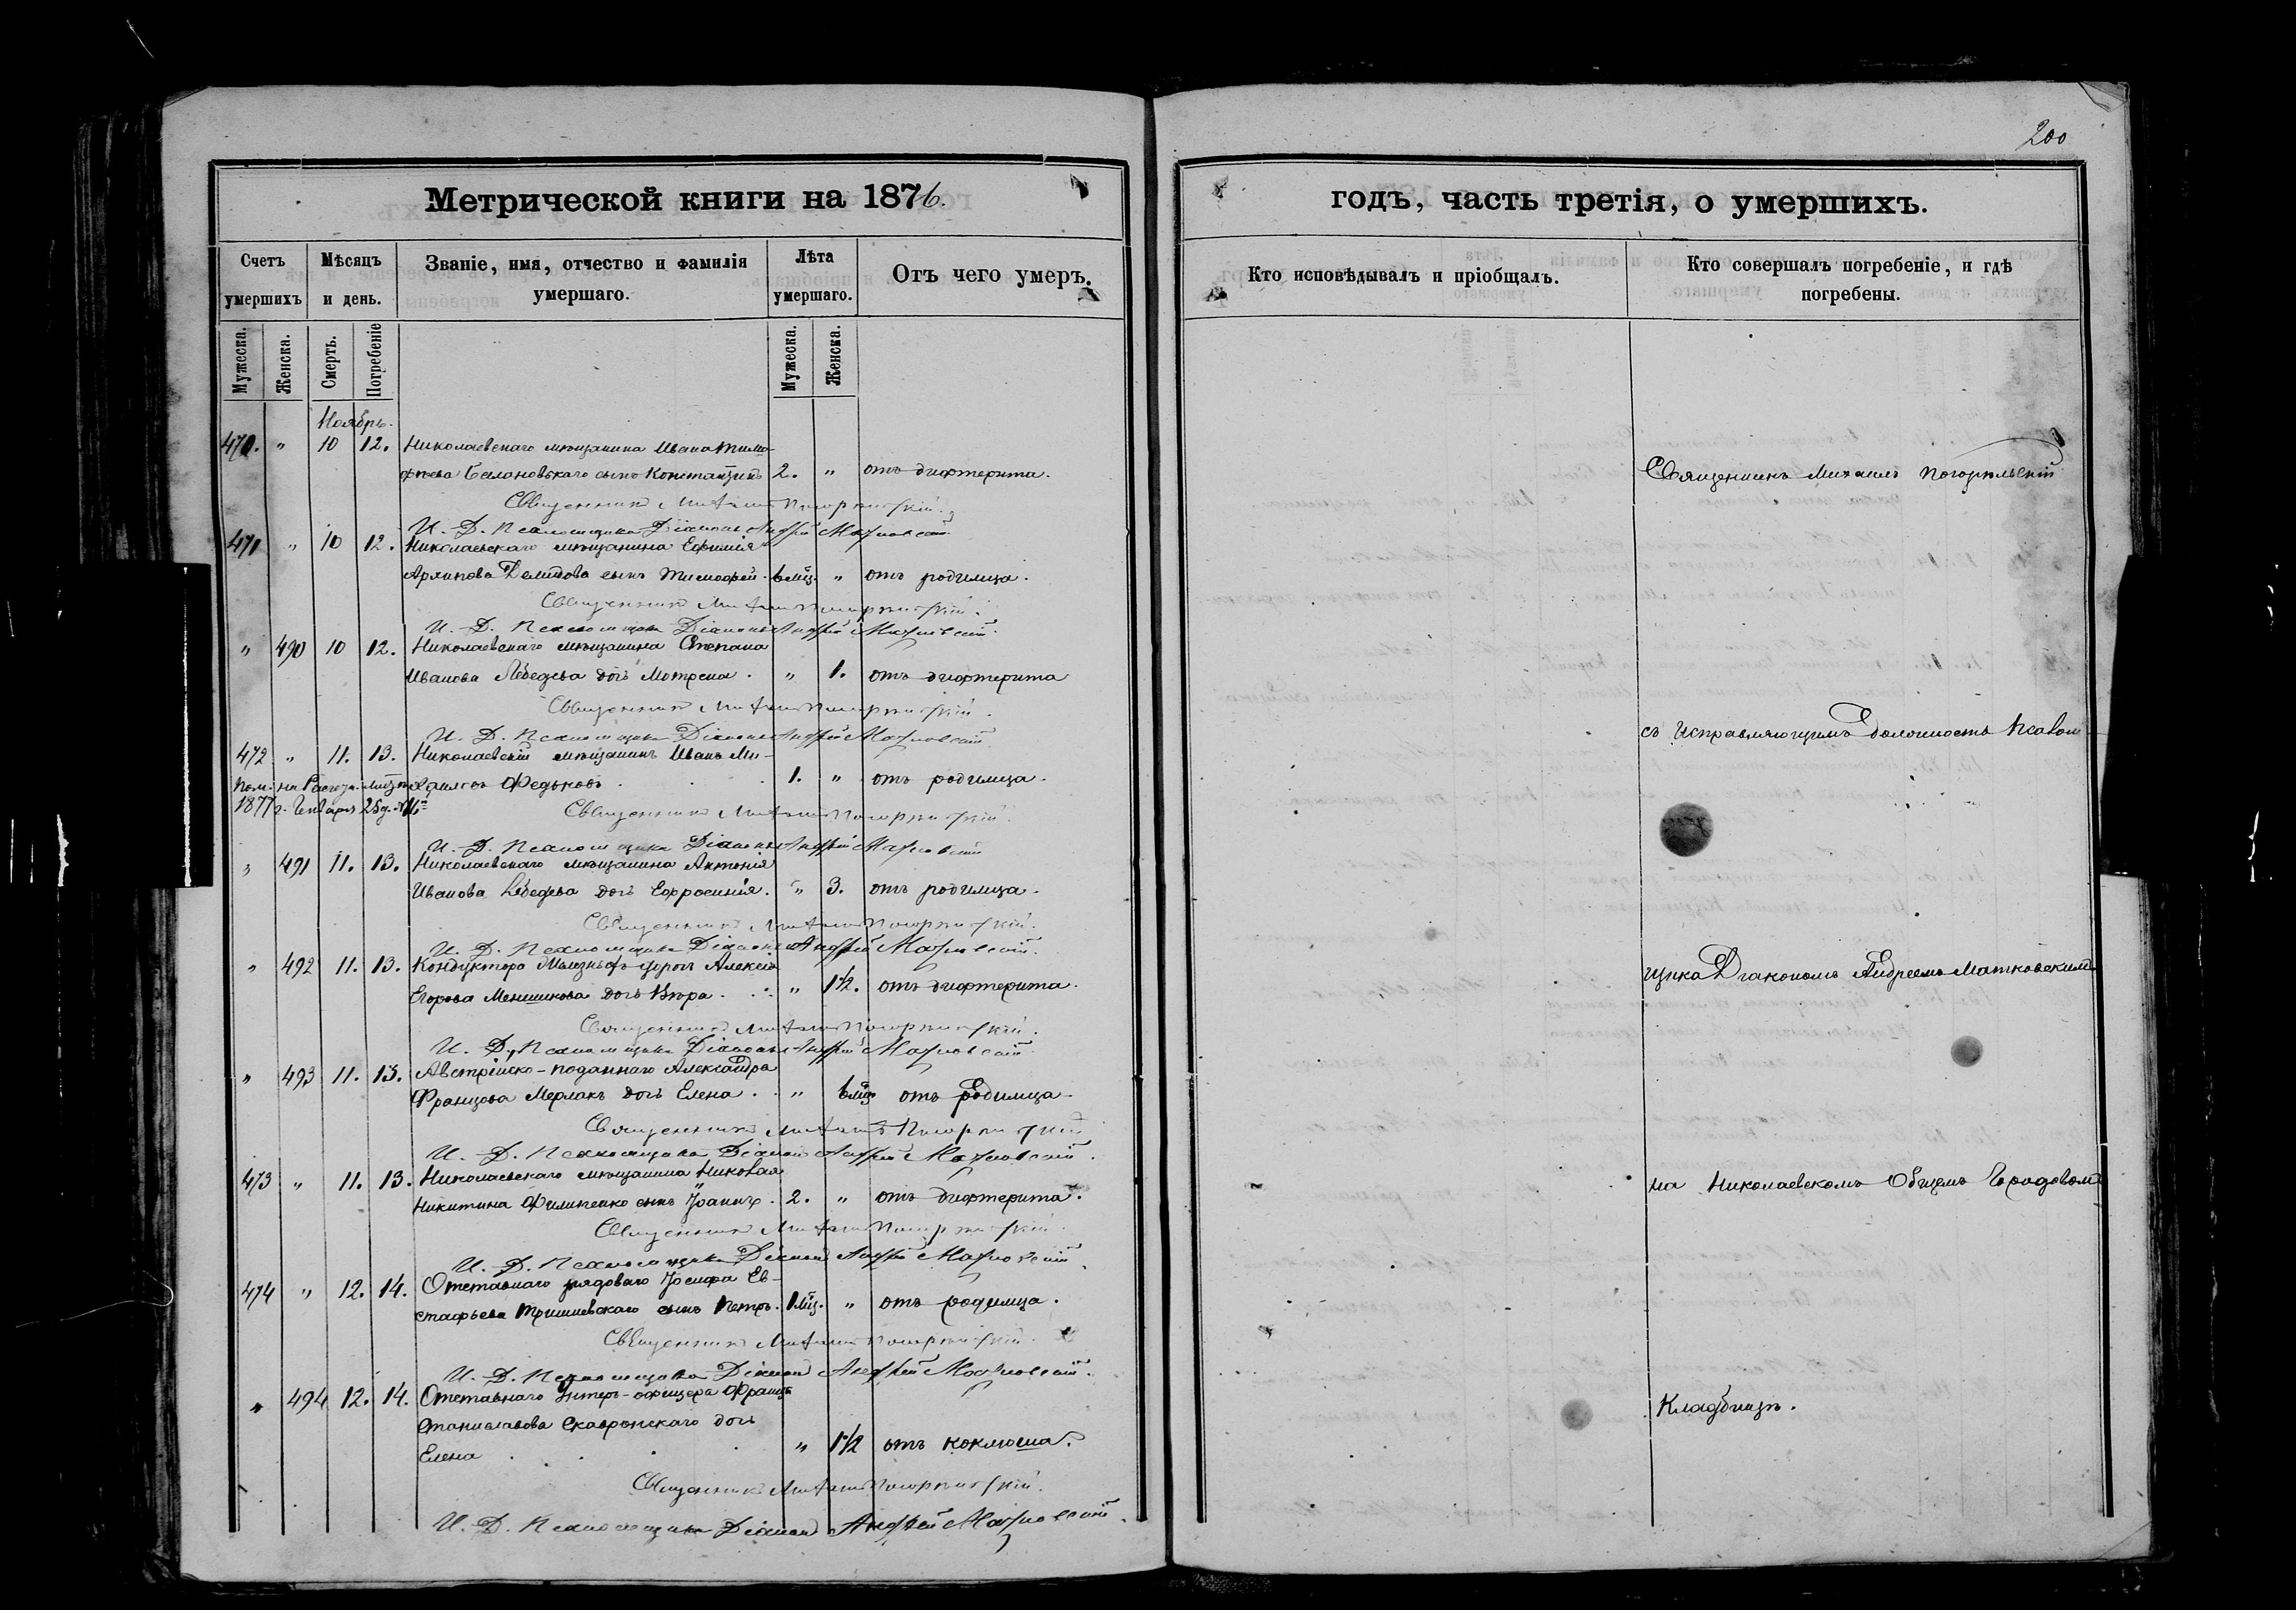 200
Метрической книги на 1876.
годъ, часть третія, о умершихъ.
Счетъ умершихъ
Мѣсяцъ и день.
Званіе, имя, отчество и фамилія умершаго.
Лѣта умершаго.
Отъ чего умеръ.
Кто исповѣдывалъ и пріобщалъ.
Кто совершалъ погребеніе, и гдѣ погребены.
Мужеска.
Женска.
Смерть.
Погребеніе
Мужеска.
Женска.
Ноябрь.
470. " 10 12. Николаевскаго мѣщанина Ивана Тимо-
фѣева сынъ Константинъ 2. " отъ дифтерита.
Священникъ Михаилъ Погорѣльскій
И. Д. Псаломщика Діаконъ Андрей Матковскій
471 " 10 12. Николаевскаго мѣщанина Ефимія
Архипова Демидова сынъ Тимофей. 6 мѣс. " отъ родимца.
Священникъ Михаилъ Погорѣльскій.
И. Д. Псаломщика Діаконъ Андрей Матковскій.
" 490 10 12. Николаевскаго мѣщанина Степана
Иванова Лебедева дочь Мотрена. " 1. отъ дифтерита
Священникъ Михаилъ Погорѣльскій.
И. Д. Псаломщика Діаконъ Андрей Матковскій
472 " 11. 13. Николаевскій мѣщанинъ Иванъ Ми-
хаиловъ Федьковъ 1. " отъ родимца.
1877 г. Января 25 д.
Священникъ Михаилъ Погорѣльскій.
И. Д. Псаломщика Діаконъ Андрей Матковскій
" 491 11. 13. Николаевскаго мѣщанина Антонія
Иванова Лебедева дочь Ефросинія. " 3. отъ родимца.
Священникъ Михаилъ Погорѣльскій.
И. Д. Псаломщика Діаконъ Андрей Матковскій.
" 492 11. 13. Кондуктора дорогъ Алексія
Егорова Меншикова дочь Вѣра. " 1½. отъ дифтерита.
Священникъ Михаилъ Погорѣльскій.
И. Д. Псаломщика Діаконъ Андрей Матковскій
" 493 11. 13. Австрійско-поданнаго Александра
Францова Мерлакъ дочь Елена. " 6 мѣс отъ родимца
Священникъ Михаилъ Погорѣльскій
И. Д. Псаломщика Діаконъ Андрей Матковскій.
473 " 11. 13. Николаевскаго мѣщанина Николая
Никитина Филипенко сынъ Іоаннъ. 2. " отъ дифтерита.
Священникъ Михаилъ Погорѣльскій.
И. Д. Псаломщика Діаконъ Андрей Матковскій.
474 " 12. 14. Отставнаго рядоваго Іосифа Ев-
стафьева сынъ Петръ. 1 мѣс. " отъ родимца.
Священникъ Михаилъ Погорѣльскій.
И. Д. Псаломщика Діаконъ Андрей Матковскій.
" 494 12. 14. Отставнаго Унтеръ-офицера Франца
Станиславова Скавронскаго дочь
Елена " 1½ отъ коклюша.
Священникъ Михаилъ Погорѣльскій.
И. Д. Псаломщика Діаконъ Андрей Матковскій.
Священникъ Михаилъ Погорѣльскій
съ Исправляющимъ должность Псалом-
щика Діакономъ Андреемъ Матковскимъ
на Николаевскомъ Общемъ Городовомъ
Кладбищѣ.